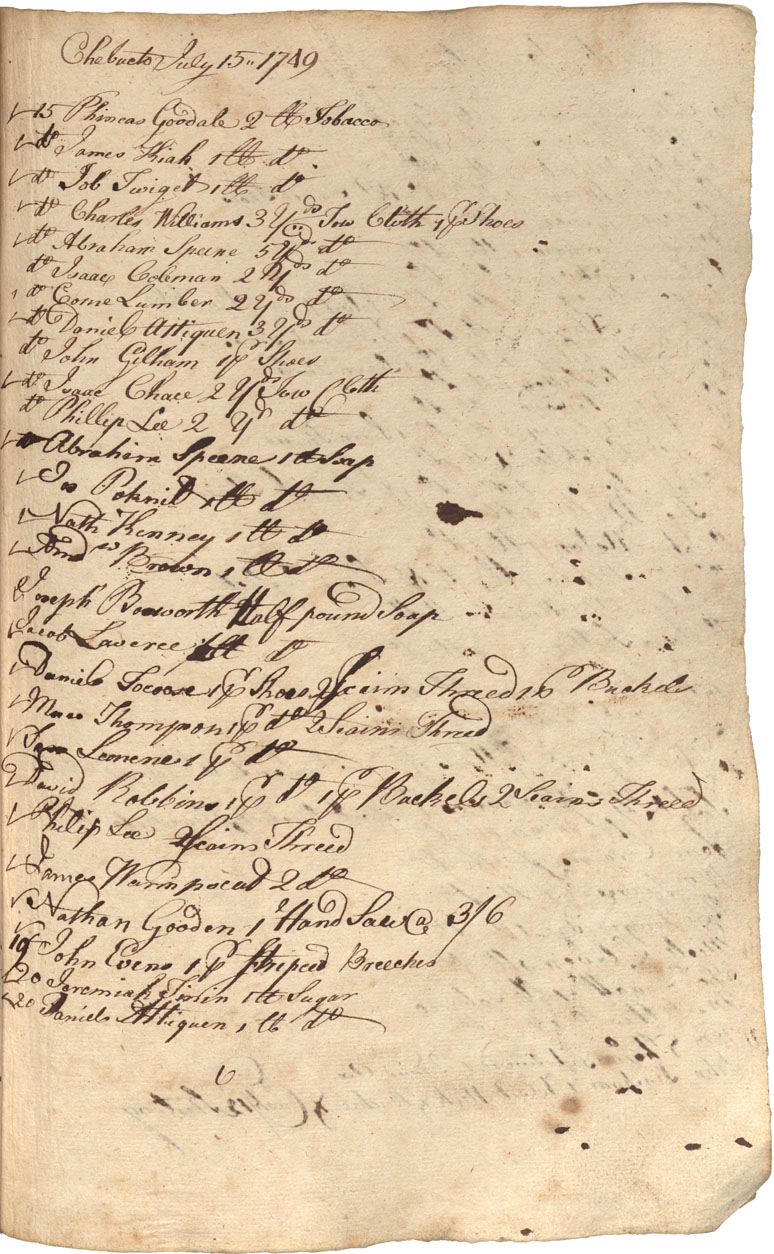 Chebucto July 15 1749
15 Phineas Goodale 2 lb Tobacco
do James Kiah 1 lb do
do Job Twiget 1 lb do
do Charles Williams 3 Yds Tow Cloth 1 pr Shoes
do Abraham Speene 5 Yds do
do Isaac Coleman 2 Yds do
do Come Lumber 2 Yds do
do Daniel Attiquen 3 Yds do
do John Gilham 1 pr Shoes
do Isaac Chace 2 Yds Tow Cloth
do Phillip Lee 2 Yds do
Abraham Speene 1 lb Soap
Poknit 1 lb do
Nath Kenney 1 lb do
Andw Brown 1 lb do
Joseph Bosworth Half pound Soap
Jacob Laveree lb do
Daniel Socoose 1 pr Shoes 2 Scains Threed 1 pr Buckels
Thompson 1 pr do 2 Scains Thried
Sam 1 pr do
David Robbins 1 pr do 1 pr Buckels 2 Scains Threed
Philip Lee 2 Scains Threed
James Wampocut 2 do
Nathan Gooden 1 Hand Saw @ 3/6
19 John Evens 1 pr Striped Breeches
20 Jeremiah Simin 1 lb Sugar
20 Daniel Attiquen 1 lb do
6